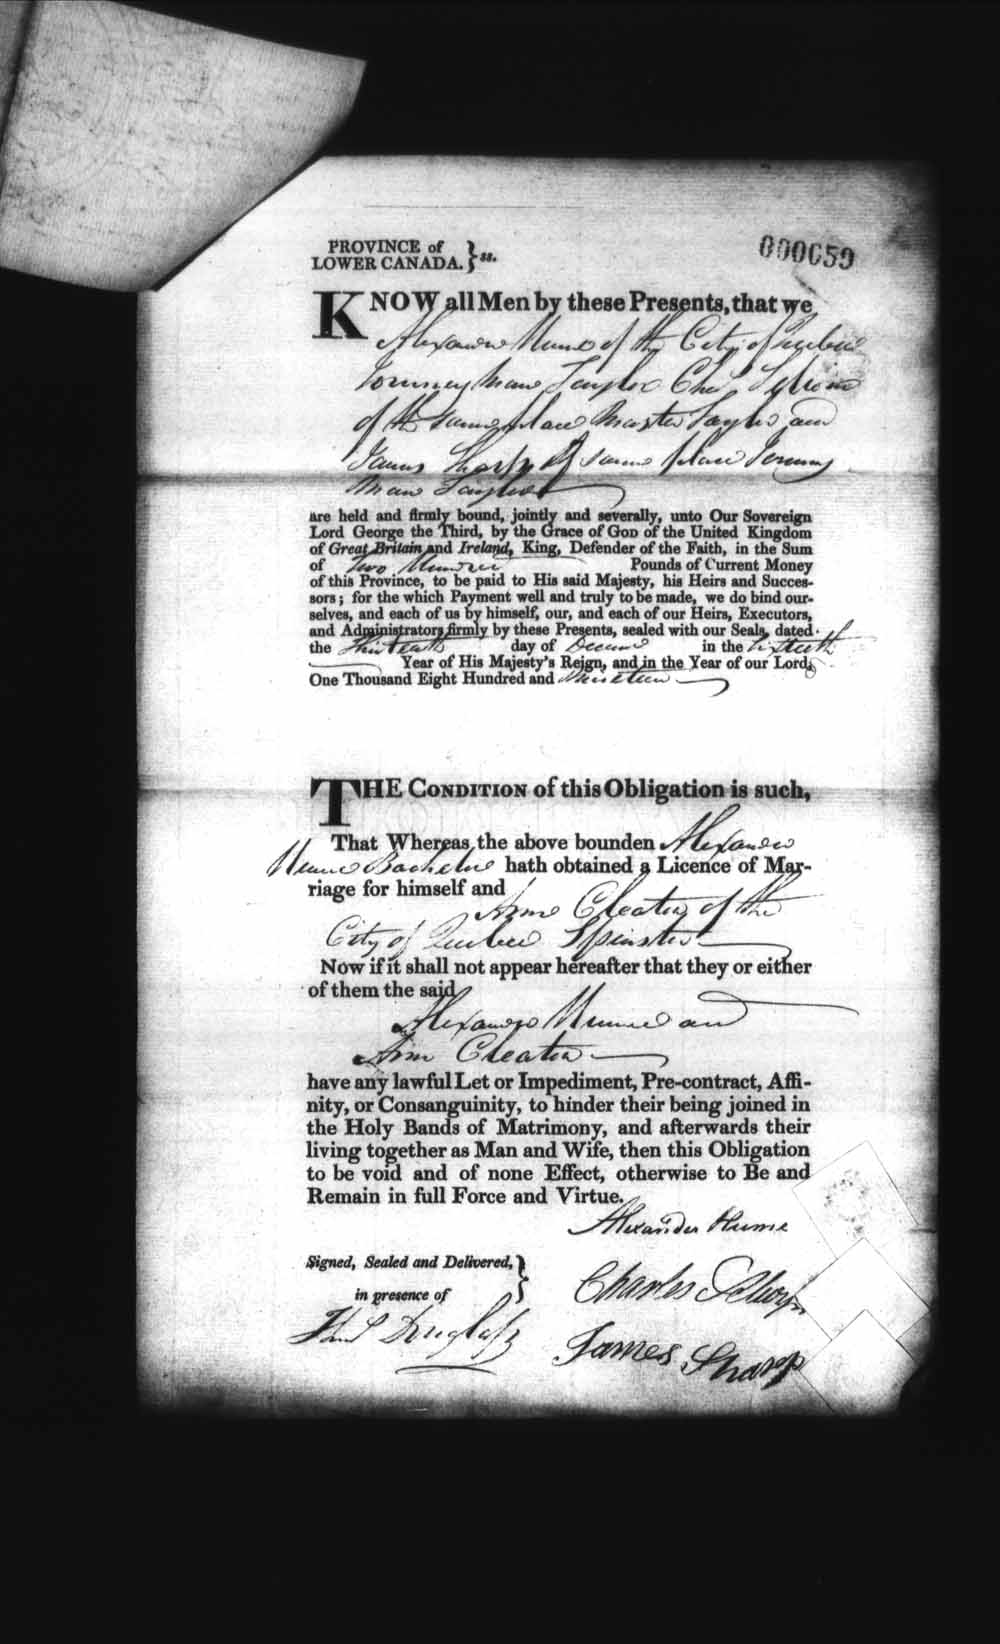 PROVINCE of
LOWER CANADA. } ss.
000059
KNOW all Men by these Presents, that we
Alexander Hume of the City of Quebec
Journey Man Taylor Cha^s Selwin
of the same place Master Taylor and
James Sharp of same place Journey
Man Taylor
are held and firmly bound, jointly and severally, unto Our Sovereign
Lord George the Third, by the Grace of GOD of the United Kingdom
of Great Britain and Ireland, King, Defender of the Faith, in the Sum
of Two Hundred Pounds of Current Money
of this Province, to be paid to His said Majesty, his Heirs and Succes-
sors; for the which Payment well and truly to be made, we do bind our-
selves, and each of us by himself, our, and each of our Heirs, Executors,
and Administrators firmly by these Presents, sealed with our Seals, dated
the Thirteenth day of December in the Sixtieth
Year of His Majesty's Reign, and in the Year of our Lord,
One Thousand Eight Hundred and Nineteen
THE CONDITION of this Obligation is such,
That Whereas the above bounden Alexander
Hume Bachelor hath obtained a Licence of Mar-
riage for himself and
Ann Cleator of the
City of Quebec Spinster
Now if it shall not appear hereafter that they or either
of them the said
Alexander Hume and
Ann Cleator
have any lawful Let or Impediment, Pre-contract, Affi-
nity, or Consanguinity, to hinder their being joined in
the Holy Bands of Matrimony, and afterwards their
living together as Man and Wife, then this Obligation
to be void and of none Effect, otherwise to Be and
Remain in full Force and Virtue.
Alexander Hume
Signed, Sealed and Delivered, }
in presence of
Charles Selwyn
Douglass
James Sharp